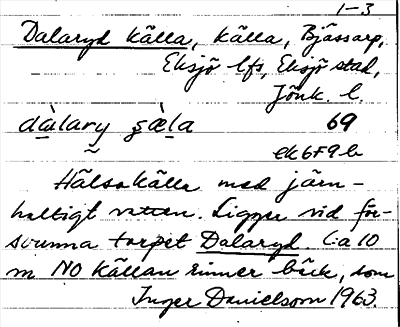 1-3
Dalaryd källa, källa, Bjässarp,
Eksjö lfs, Eksjö stad,
Jönk. l.
dàlary sæ̀la 69
ek 6F9b
Hälsokälla med järn-
haltigt vatten. Ligger vid för-
svunna torpet Dalaryd. Ca 10
m NO källan rinner bäck, som
Inger Danielsson 1963.